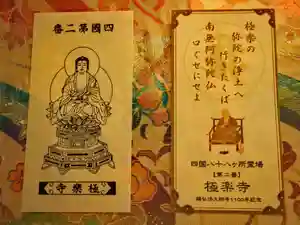 四國第二番
極樂寺
極楽の
弥陀の浄土へ
行きたくば
南無阿弥陀仏
口ぐせにせよ
四国八十八ヶ所霊場
【第二番】
極楽寺
弘法大師号1100年記念